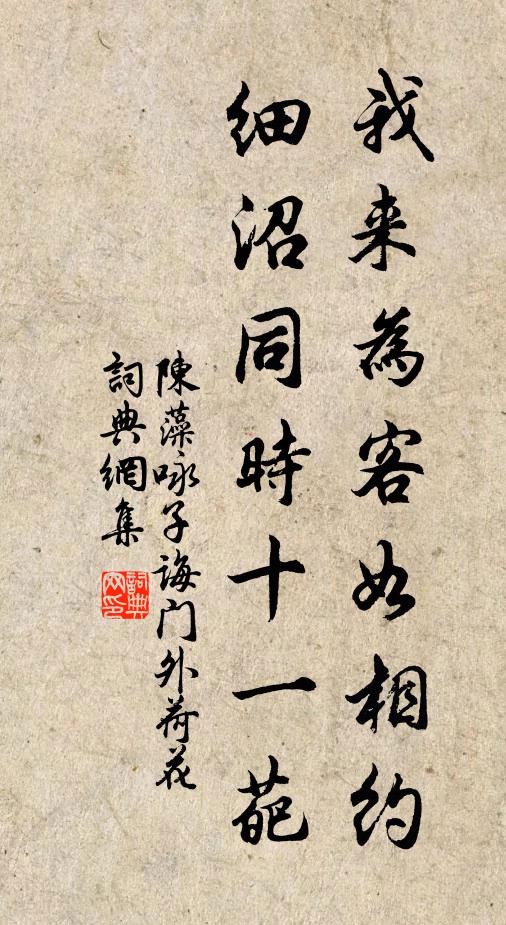 我来為客如相約
細沼同時十一葩
陳藻咏子誨门外荷花
詞典網集
詞典
网印